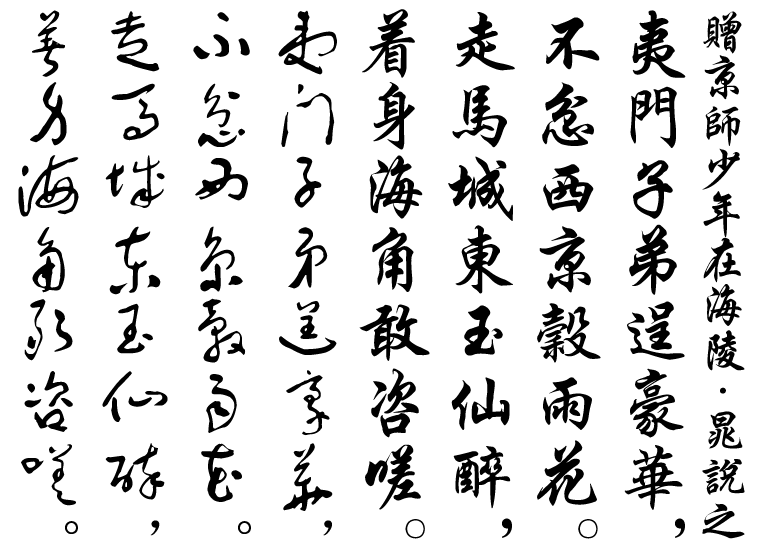 贈京師少年在海陵·晁說之
夷門子弟逞豪華，
不忿西京穀雨花。
走馬城東玉仙醉，
着身海角敢咨嗟。
夷門子弟逞豪華，
不忿西京穀雨花。
走馬城東玉仙醉，
着身海角敢咨嗟。